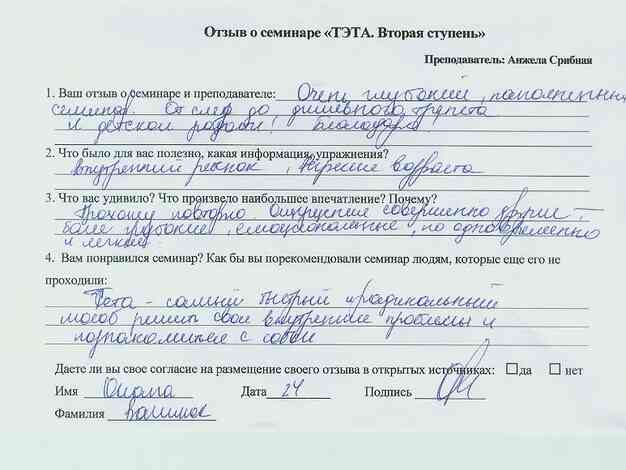 Отзыв о семинаре «ТЭТА. Вторая ступень»
Преподаватель: Анжела Срибная
1. Ваш отзыв о семинаре и преподавателе: Очень глубокий, наполненный
семинар. От слёз до душевного трепета
и детской радости!
2. Что было для вас полезно, какая информация, упражнения?
Внутренний ребенок,
3. Что вас удивило? Что произвело наибольшее впечатление? Почему?
Прохожу повторно. Ощущения совершенно другие -
более глубокие, эмоциональные, но одновременно
и легкие.
4. Вам понравился семинар? Как бы вы порекомендовали семинар людям, которые еще его не
проходили:
Тета - самый быстрый и радикальный
способ решить свои внутренние проблемы и
познакомиться с собой
Даете ли вы свое согласие на размещение своего отзыва в открытых источниках: да нет
Имя Дата 24 Подпись
Фамилия